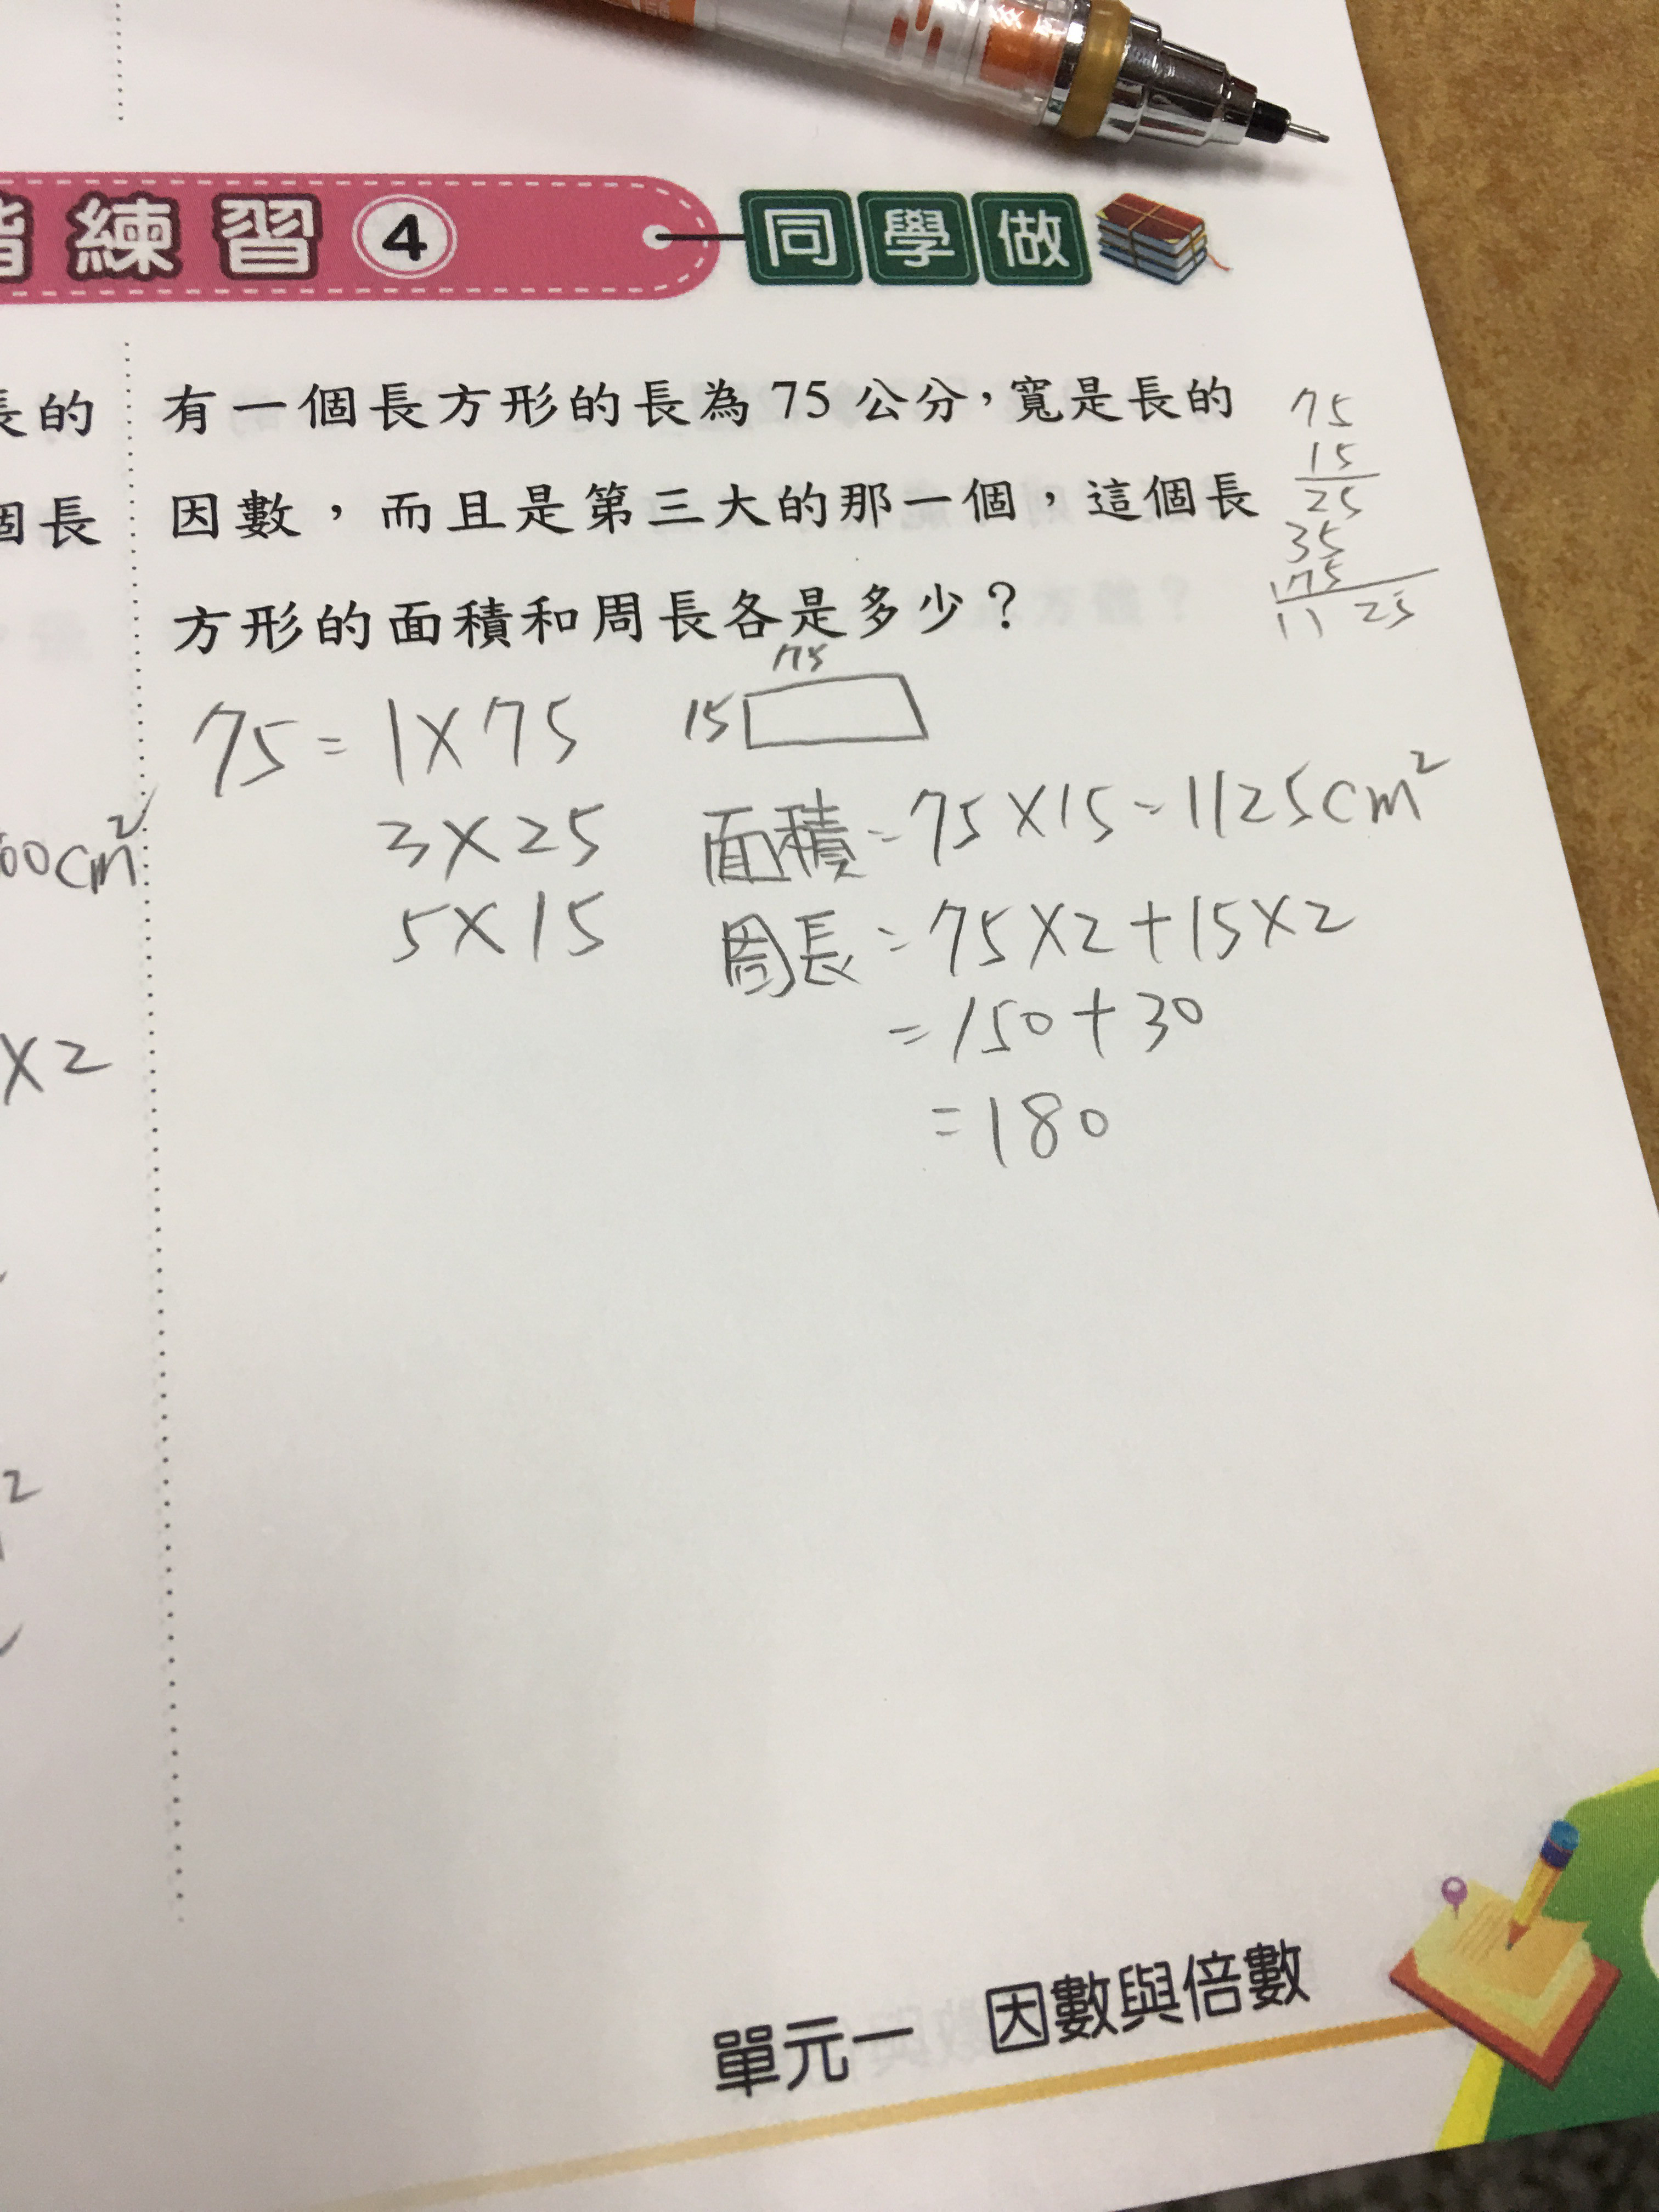 練習 4 同學做
長的
個長
有一個長方形的長為 75 公分，寬是長的
因數，而且是第三大的那一個，這個長
方形的面積和周長各是多少？
75
15
25
35
75
11 25
75 = 1 X 75
3 X 25
5 X 15
75
15
面積 = 75 X 15 = 1125 cm²
周長 = 75 X 2 + 15 X 2
= 150 + 30
= 180
00 cm²
X 2
2
單元一 因數與倍數